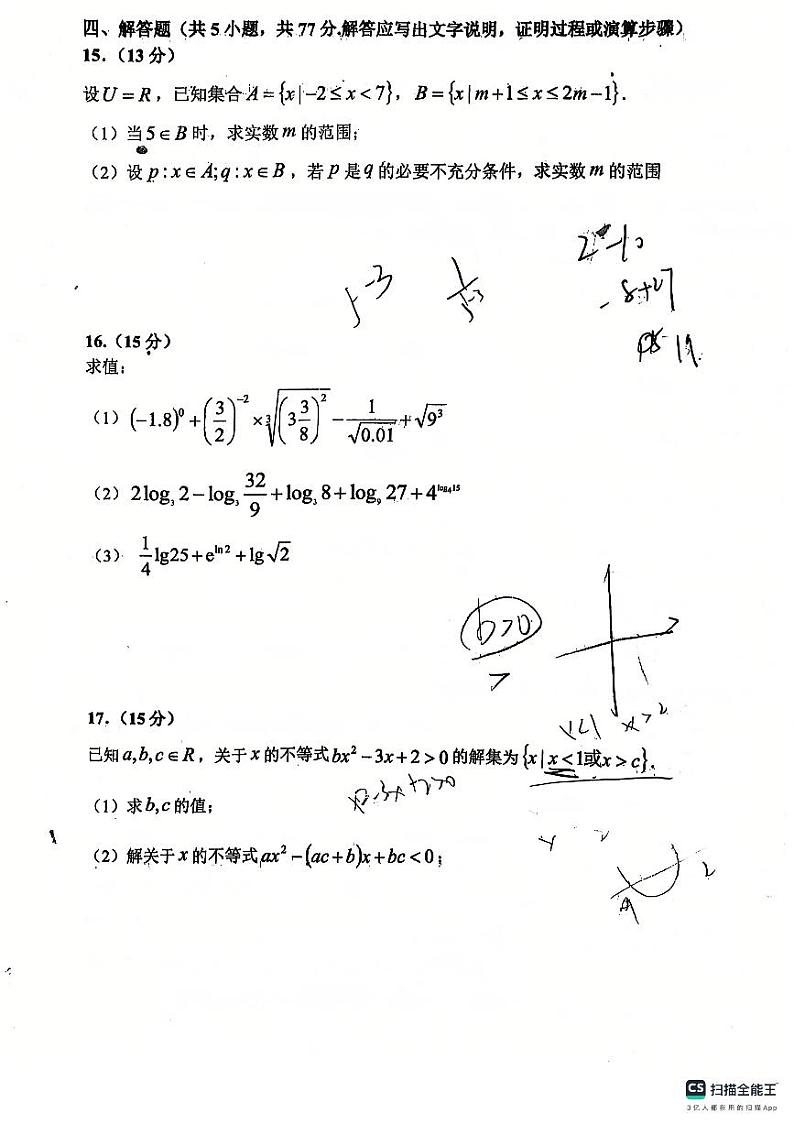 四、解答题（共 5 小题，共 77 分.解答应写出文字说明，证明过程或演算步骤）
15.（13 分）
设U = R，已知集合 A = {x | −2 ≤ x < 7}，B = {x | m + 1 ≤ x ≤ 2m − 1}．
（1）当 5 ∈ B 时，求实数 m 的范围；
（2）设 p : x ∈ A; q : x ∈ B，若 P 是 q 的必要不充分条件，求实数 m 的范围
16.（15 分）
求值；
（1）(−1.8)⁰ + (3/2)⁻² × ∛((3 3/8)²) − 1/√0.01 + √9³
（2）2log₃ 2 − log₃ 32/9 + log₃ 8 + log₉ 27 + 4^(log₄15)
（3）1/4 lg25 + e^(ln2) + lg√2
b>0
>
17.（15 分）
x<1 x>2
已知 a,b,c ∈ R，关于 x 的不等式 bx² − 3x + 2 > 0 的解集为 {x | x < 1或x > c}．
（1）求 b,c 的值；
（2）解关于 x 的不等式 ax² − (ac + b)x + bc < 0；
CS 扫描全能王
3亿人都在用的扫描App